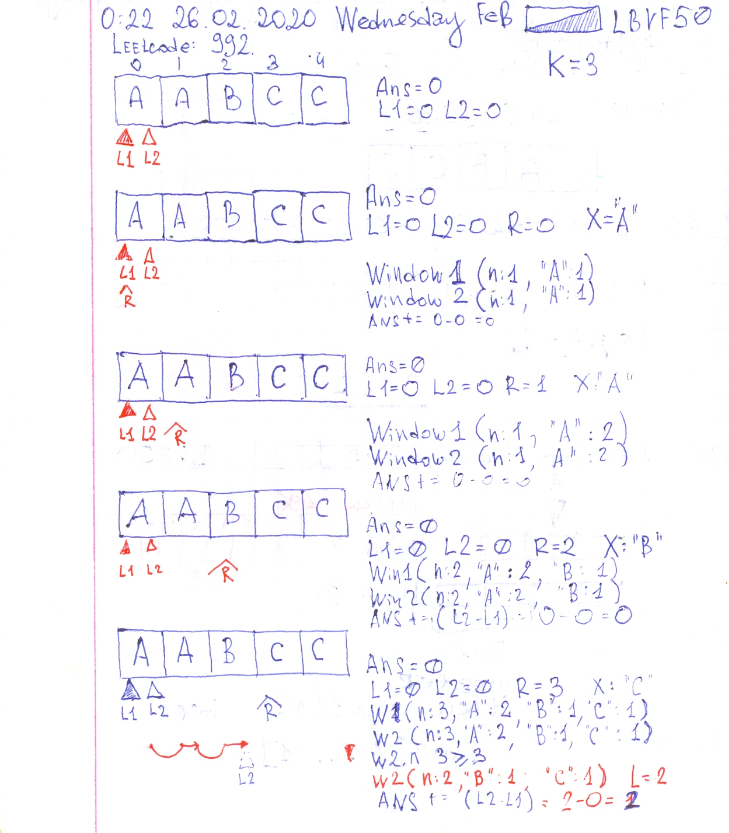 0:22 26.02.2020 Wednesday FeB LBVF50
LEEtcode: 992.
K=3
0 1 2 3 4
A A B C C
Ans=0
L1=0 L2=0
L1 L2
A A B C C
Ans=0
L1=0 L2=0 R=0 X="A"
L1 L2
R
Window 1 (n:1, "A":1)
Window 2 (n:1, "A":1)
ANS+= 0-0=0
A A B C C
Ans=0
L1=0 L2=0 R=1 X:"A"
L1 L2 R
Window1 (n:1, "A":2)
Window2 (n:1, A":2)
ANS+= 0-0=0
A A B C C
Ans=0
L1=0 L2=0 R=2 X:"B"
L1 L2 R
Win1(n:2,"A":2, "B":1)
Win2(n:2,"A":2, "B":1)
ANS+=(L2-L1)= 0-0=0
A A B C C
Ans=0
L1=0 L2=0 R=3 X:"C"
L1 L2 R
W1(n:3,"A":2, "B":1,"C":1)
W2(n:3,"A":2, "B":1,"C":1)
W2.n 3≥3
L2
W2(n:2,"B":1, "C":1) L=2
ANS+= (L2-L1) = 2-0= 2